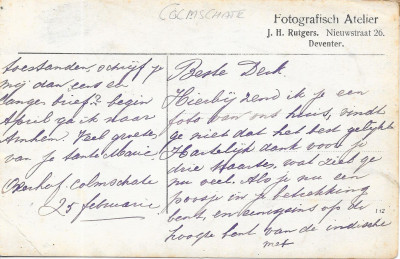 COLMSCHATE
Fotografisch Atelier
J. H. Rutgers. Nieuwstraat 26.
Deventer.
Beste Derk.
Hierbij zend ik je een
foto van ons huis, vindt
ge niet dat het best gelykt
Hartelijk dank voor je
drie kaartjes, wat ziet ge
nu veel. Als je nu een
poosje in je betrekking
bent, en eenigszins op de
hoogte bent van de indische
112
met
toestanden, schrijf je
mij dan eens en
langen brief? begin
April ga ik naar
Arnhem. Veel groeten
van je tante Marie
Colmschate
25 februarie